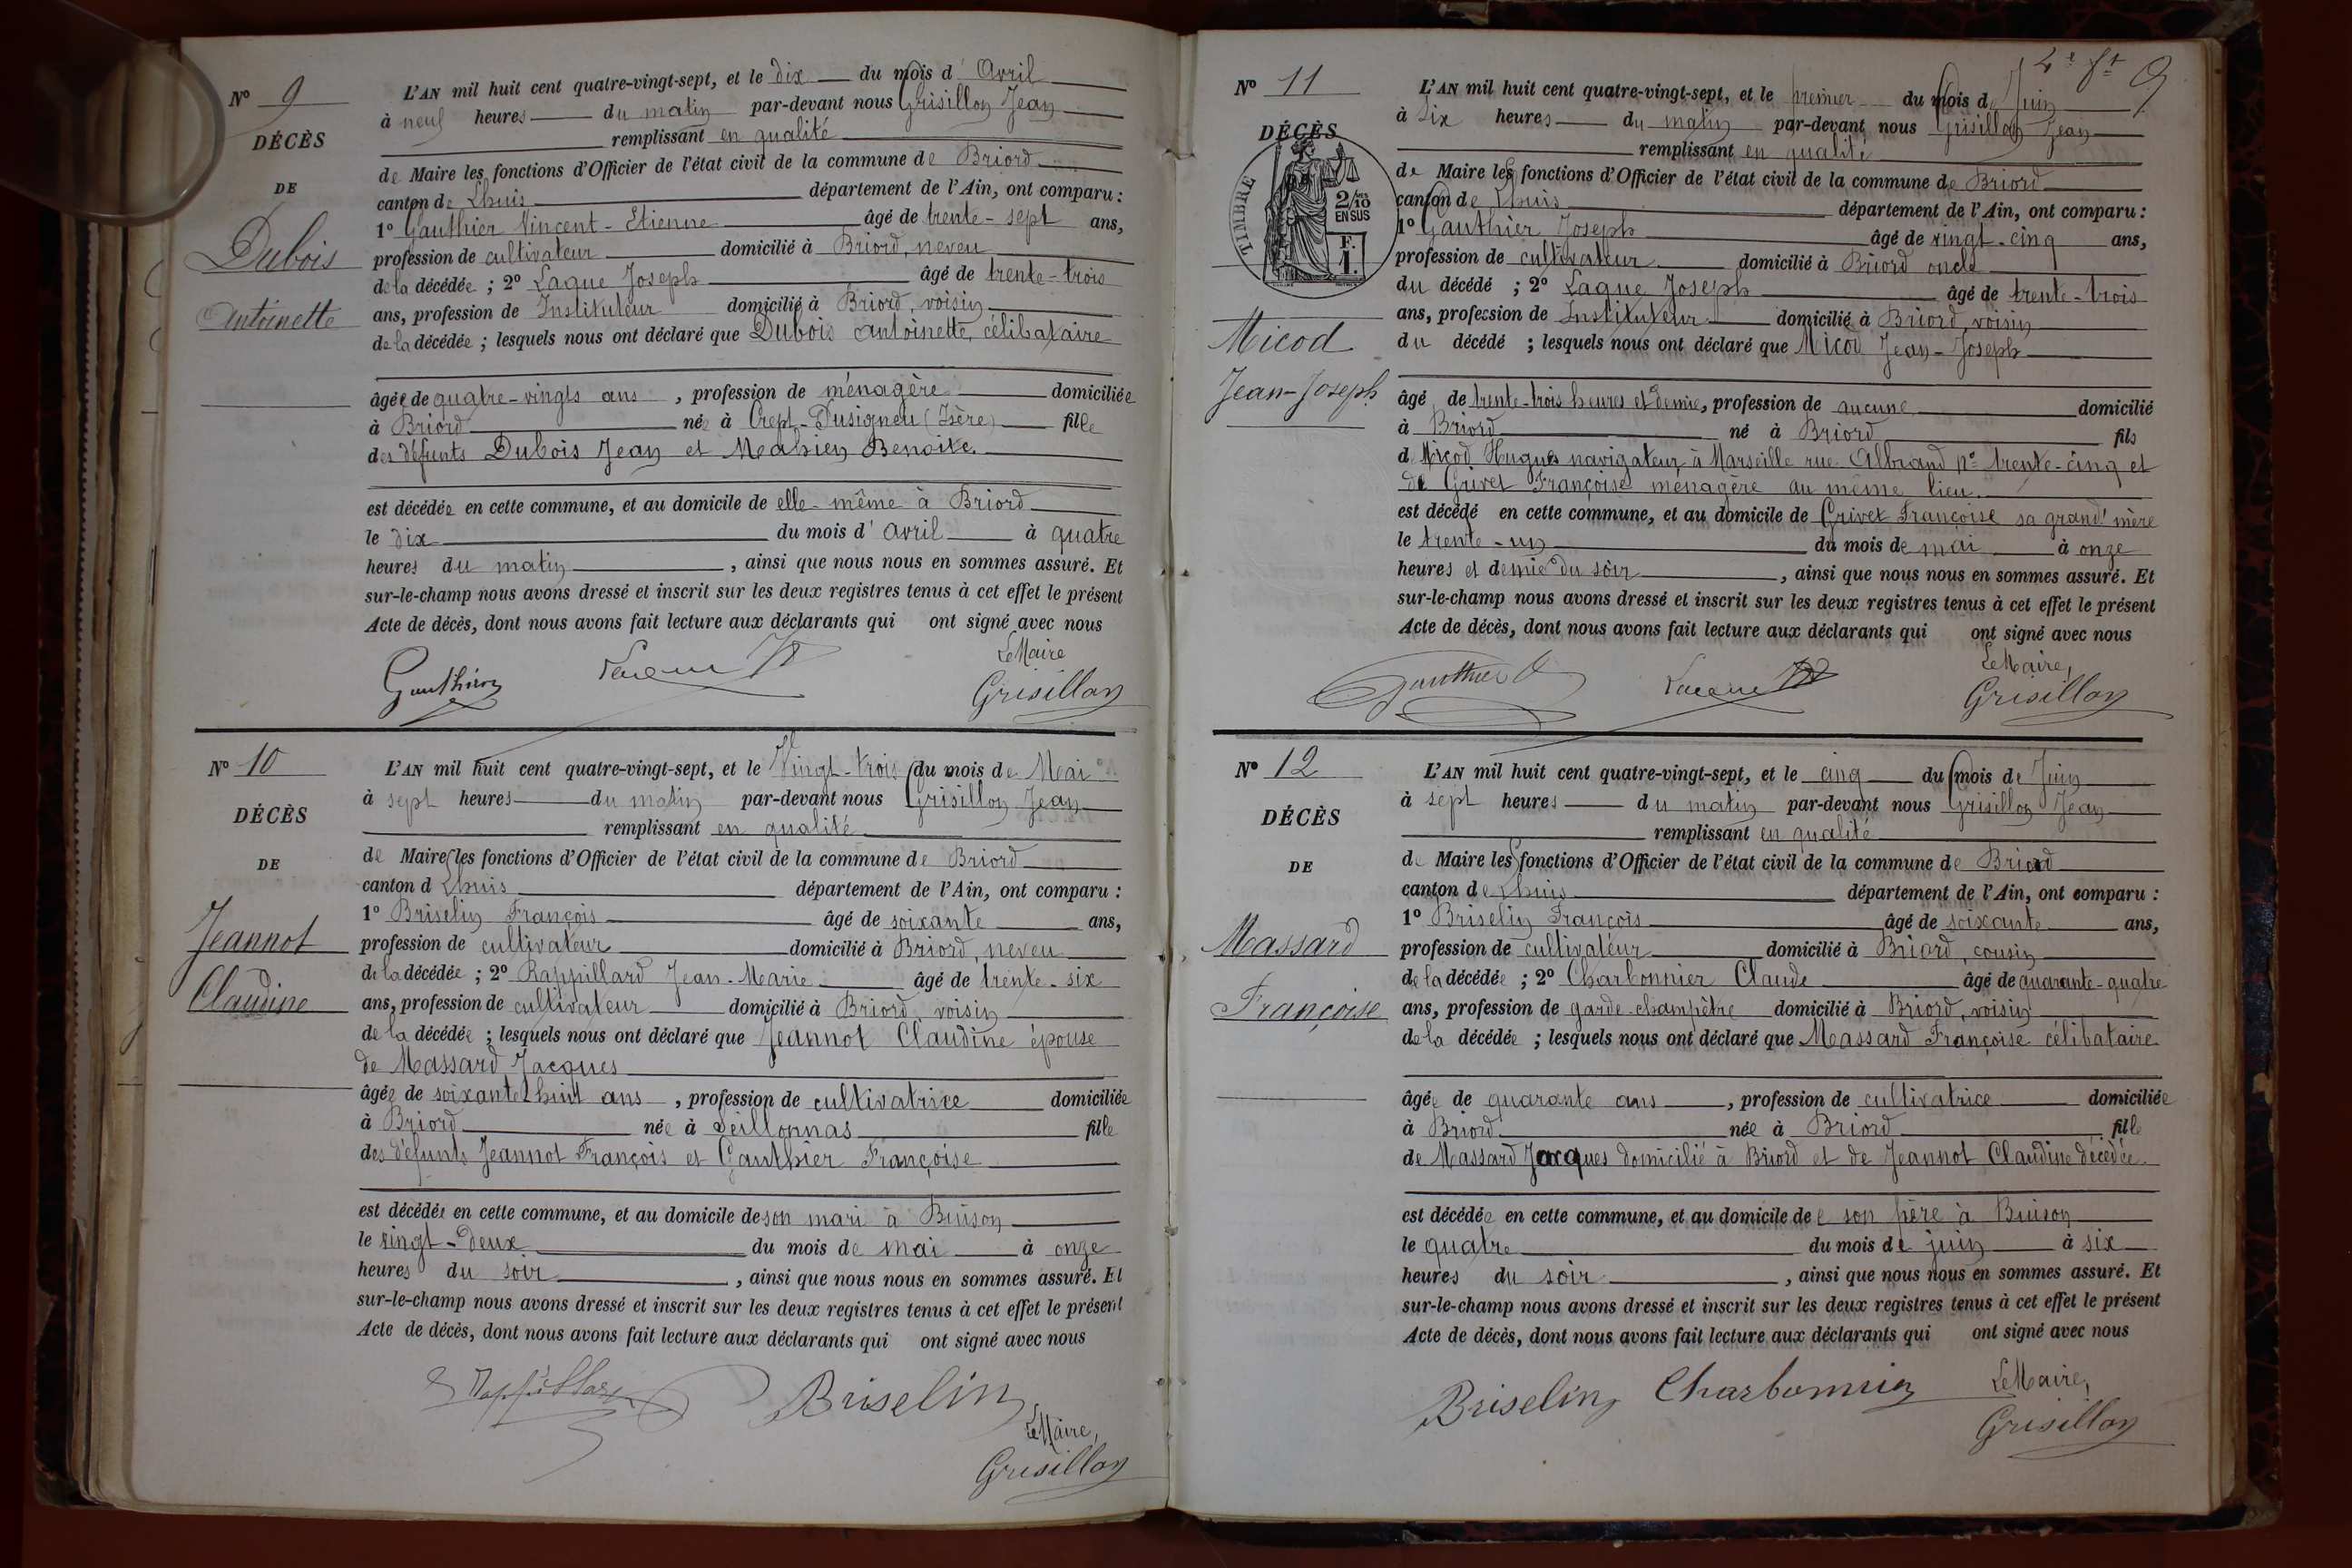 N° 9
DÉCÈS
DE
Dubois
Antoinette
L'AN mil huit cent quatre-vingt-sept, et le dix du mois d' Avril
à neuf heures du matin par-devant nous Grisillon Jean
remplissant en qualité
de Maire les fonctions d'Officier de l'état civil de la commune de Briord
canton de Lhuis département de l'Ain, ont comparu :
1° Gauthier Vincent-Etienne âgé de trente-sept ans,
profession de cultivateur domicilié à Briord, neveu
de la décédée ; 2° Laque Joseph âgé de trente-trois
ans, profession de Instituteur domicilié à Briord, voisin
de la décédée ; lesquels nous ont déclaré que Dubois Antoinette, célibataire
âgée de quatre-vingts ans , profession de ménagère domiciliée
à Briord née à Crept-Pusigneu (Isère) fille
des défunts Dubois Jean et Mathieu Benoite.
est décédée en cette commune, et au domicile de elle-même à Briord
le dix du mois d' avril à quatre
heures du matin , ainsi que nous nous en sommes assuré. Et
sur-le-champ nous avons dressé et inscrit sur les deux registres tenus à cet effet le présent
Acte de décès, dont nous avons fait lecture aux déclarants qui ont signé avec nous
Le Maire
Gauthier Laque Grisillon
N° 10
DÉCÈS
DE
Jeannot
Claudine
L'AN mil huit cent quatre-vingt-sept, et le Vingt-trois du mois de Mai
à sept heures du matin par-devant nous Grisillon Jean
remplissant en qualité
de Maire les fonctions d'Officier de l'état civil de la commune de Briord
canton d Lhuis département de l'Ain, ont comparu :
1° Briselin François âgé de soixante ans,
profession de cultivateur domicilié à Briord, neveu
de la décédée ; 2° Rappillard Jean-Marie âgé de trente-six
ans, profession de cultivateur domicilié à Briord, voisin
de la décédée ; lesquels nous ont déclaré que Jeannot Claudine épouse
de Massard Jacques
âgée de soixante huit ans , profession de cultivatrice domiciliée
à Briord née à Seillonnas fille
des défunts Jeannot François et Gauthier Françoise
est décédée en cette commune, et au domicile de son mari à Buison
le vingt-deux du mois de mai à onze
heures du soir , ainsi que nous nous en sommes assuré. Et
sur-le-champ nous avons dressé et inscrit sur les deux registres tenus à cet effet le présent
Acte de décès, dont nous avons fait lecture aux déclarants qui ont signé avec nous
Rappillard Briselin
Le Maire,
Grisillon
9
N° 11
DÉCÈS
DE
TIMBRE
2/10
EN SUS
F.
1.
Micod
Jean-Joseph
L'AN mil huit cent quatre-vingt-sept, et le premier du mois de Juin
à six heures du matin par-devant nous Grisillon Jean
remplissant en qualité
de Maire les fonctions d'Officier de l'état civil de la commune de Briord
canton de Lhuis département de l'Ain, ont comparu :
1° Gauthier Joseph âgé de vingt-cinq ans,
profession de cultivateur domicilié à Briord oncle
du décédé ; 2° Laque Joseph âgé de trente-trois
ans, profession de Instituteur domicilié à Briord, voisin
du décédé ; lesquels nous ont déclaré que Micod Jean-Joseph
âgé de trente-trois heures et demie, profession de aucune domicilié
à Briord né à Briord fils
d Micod Hugues navigateur à Marseille rue Albrand n° trente-cinq et
de Grivet Françoise ménagère au même lieu.
est décédé en cette commune, et au domicile de Grivet Françoise sa grand'mère
le trente-un du mois de mai à onze
heures et demie du soir , ainsi que nous nous en sommes assuré. Et
sur-le-champ nous avons dressé et inscrit sur les deux registres tenus à cet effet le présent
Acte de décès, dont nous avons fait lecture aux déclarants qui ont signé avec nous
Le Maire,
Gauthier Laque Grisillon
N° 12
DÉCÈS
DE
Massard
Françoise
L'AN mil huit cent quatre-vingt-sept, et le cinq du mois de Juin
à sept heures du matin par-devant nous Grisillon Jean
remplissant en qualité
de Maire les fonctions d'Officier de l'état civil de la commune de Briord
canton de Lhuis département de l'Ain, ont comparu :
1° Briselin François âgé de soixante ans,
profession de cultivateur domicilié à Briord, cousin
de la décédée ; 2° Charbonnier Claude âgé de quarante-quatre
ans, profession de garde-champêtre domicilié à Briord, voisin
de la décédée ; lesquels nous ont déclaré que Massard Françoise célibataire
âgée de quarante ans , profession de cultivatrice domiciliée
à Briord née à Briord fille
de Massard Jacques domicilié à Briord et de Jeannot Claudine décédée
est décédée en cette commune, et au domicile de son père à Buison
le quatre du mois de juin à six
heures du soir , ainsi que nous nous en sommes assuré. Et
sur-le-champ nous avons dressé et inscrit sur les deux registres tenus à cet effet le présent
Acte de décès, dont nous avons fait lecture aux déclarants qui ont signé avec nous
Le Maire,
Briselin Charbonnier Grisillon